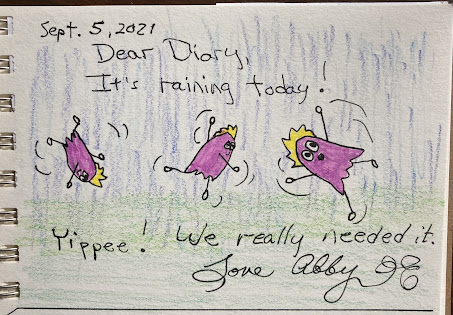 Sept. 5, 2021
Dear Diary,
It's raining today!
Yippee! We really needed it.
Love Abby